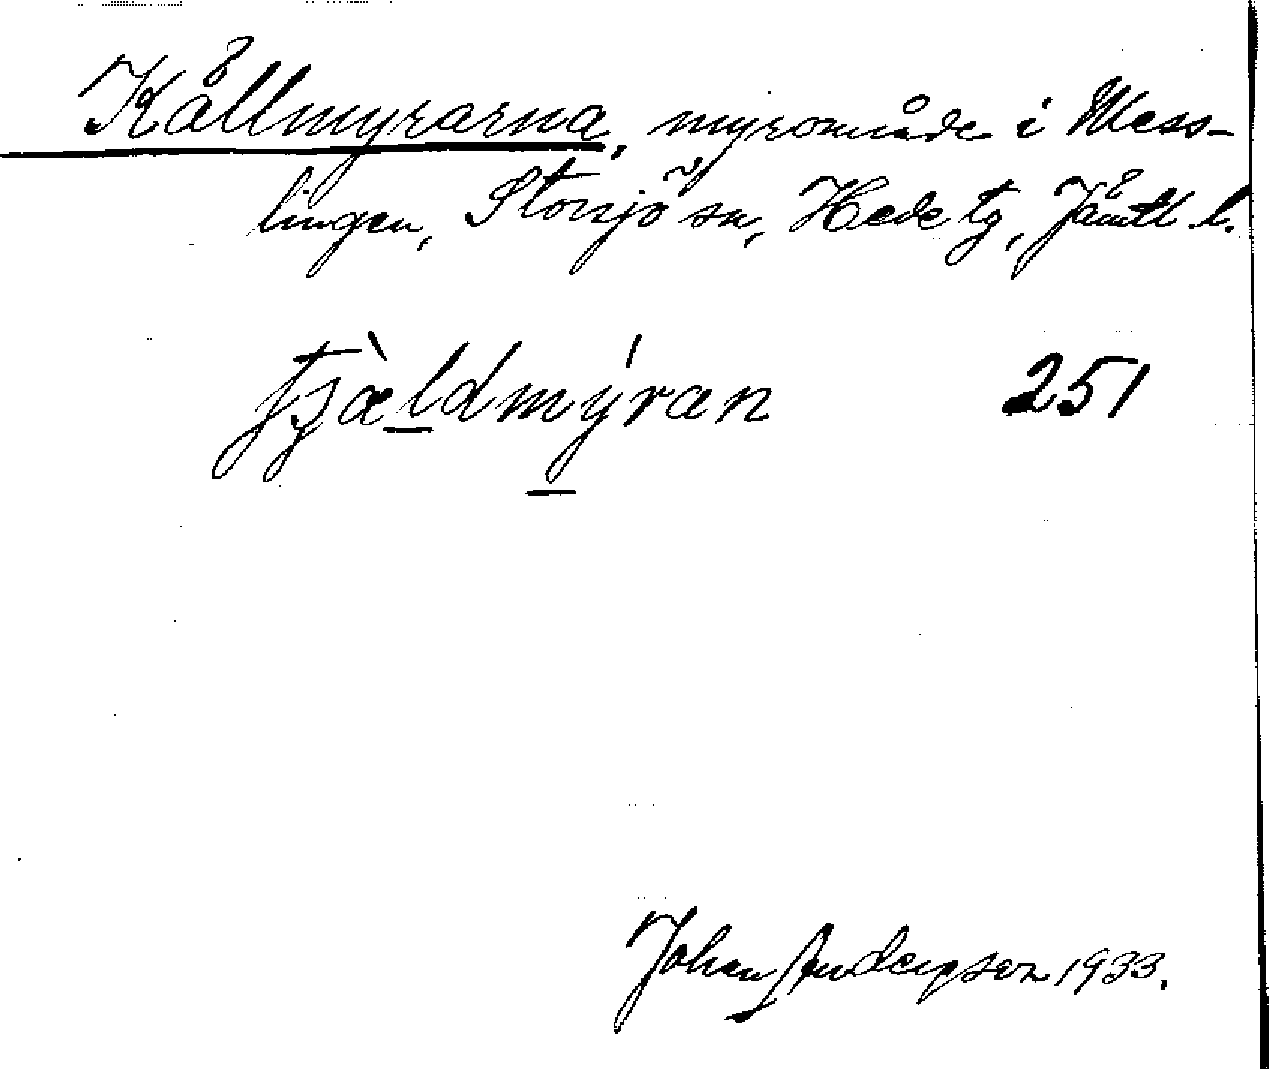 Källmyrarna, myrområde i Mess-
lingen, Storsjö sn, Hede tg, Jämtl. l.
tjæ̀ldmýran 251
Johan Anderpson 1933.